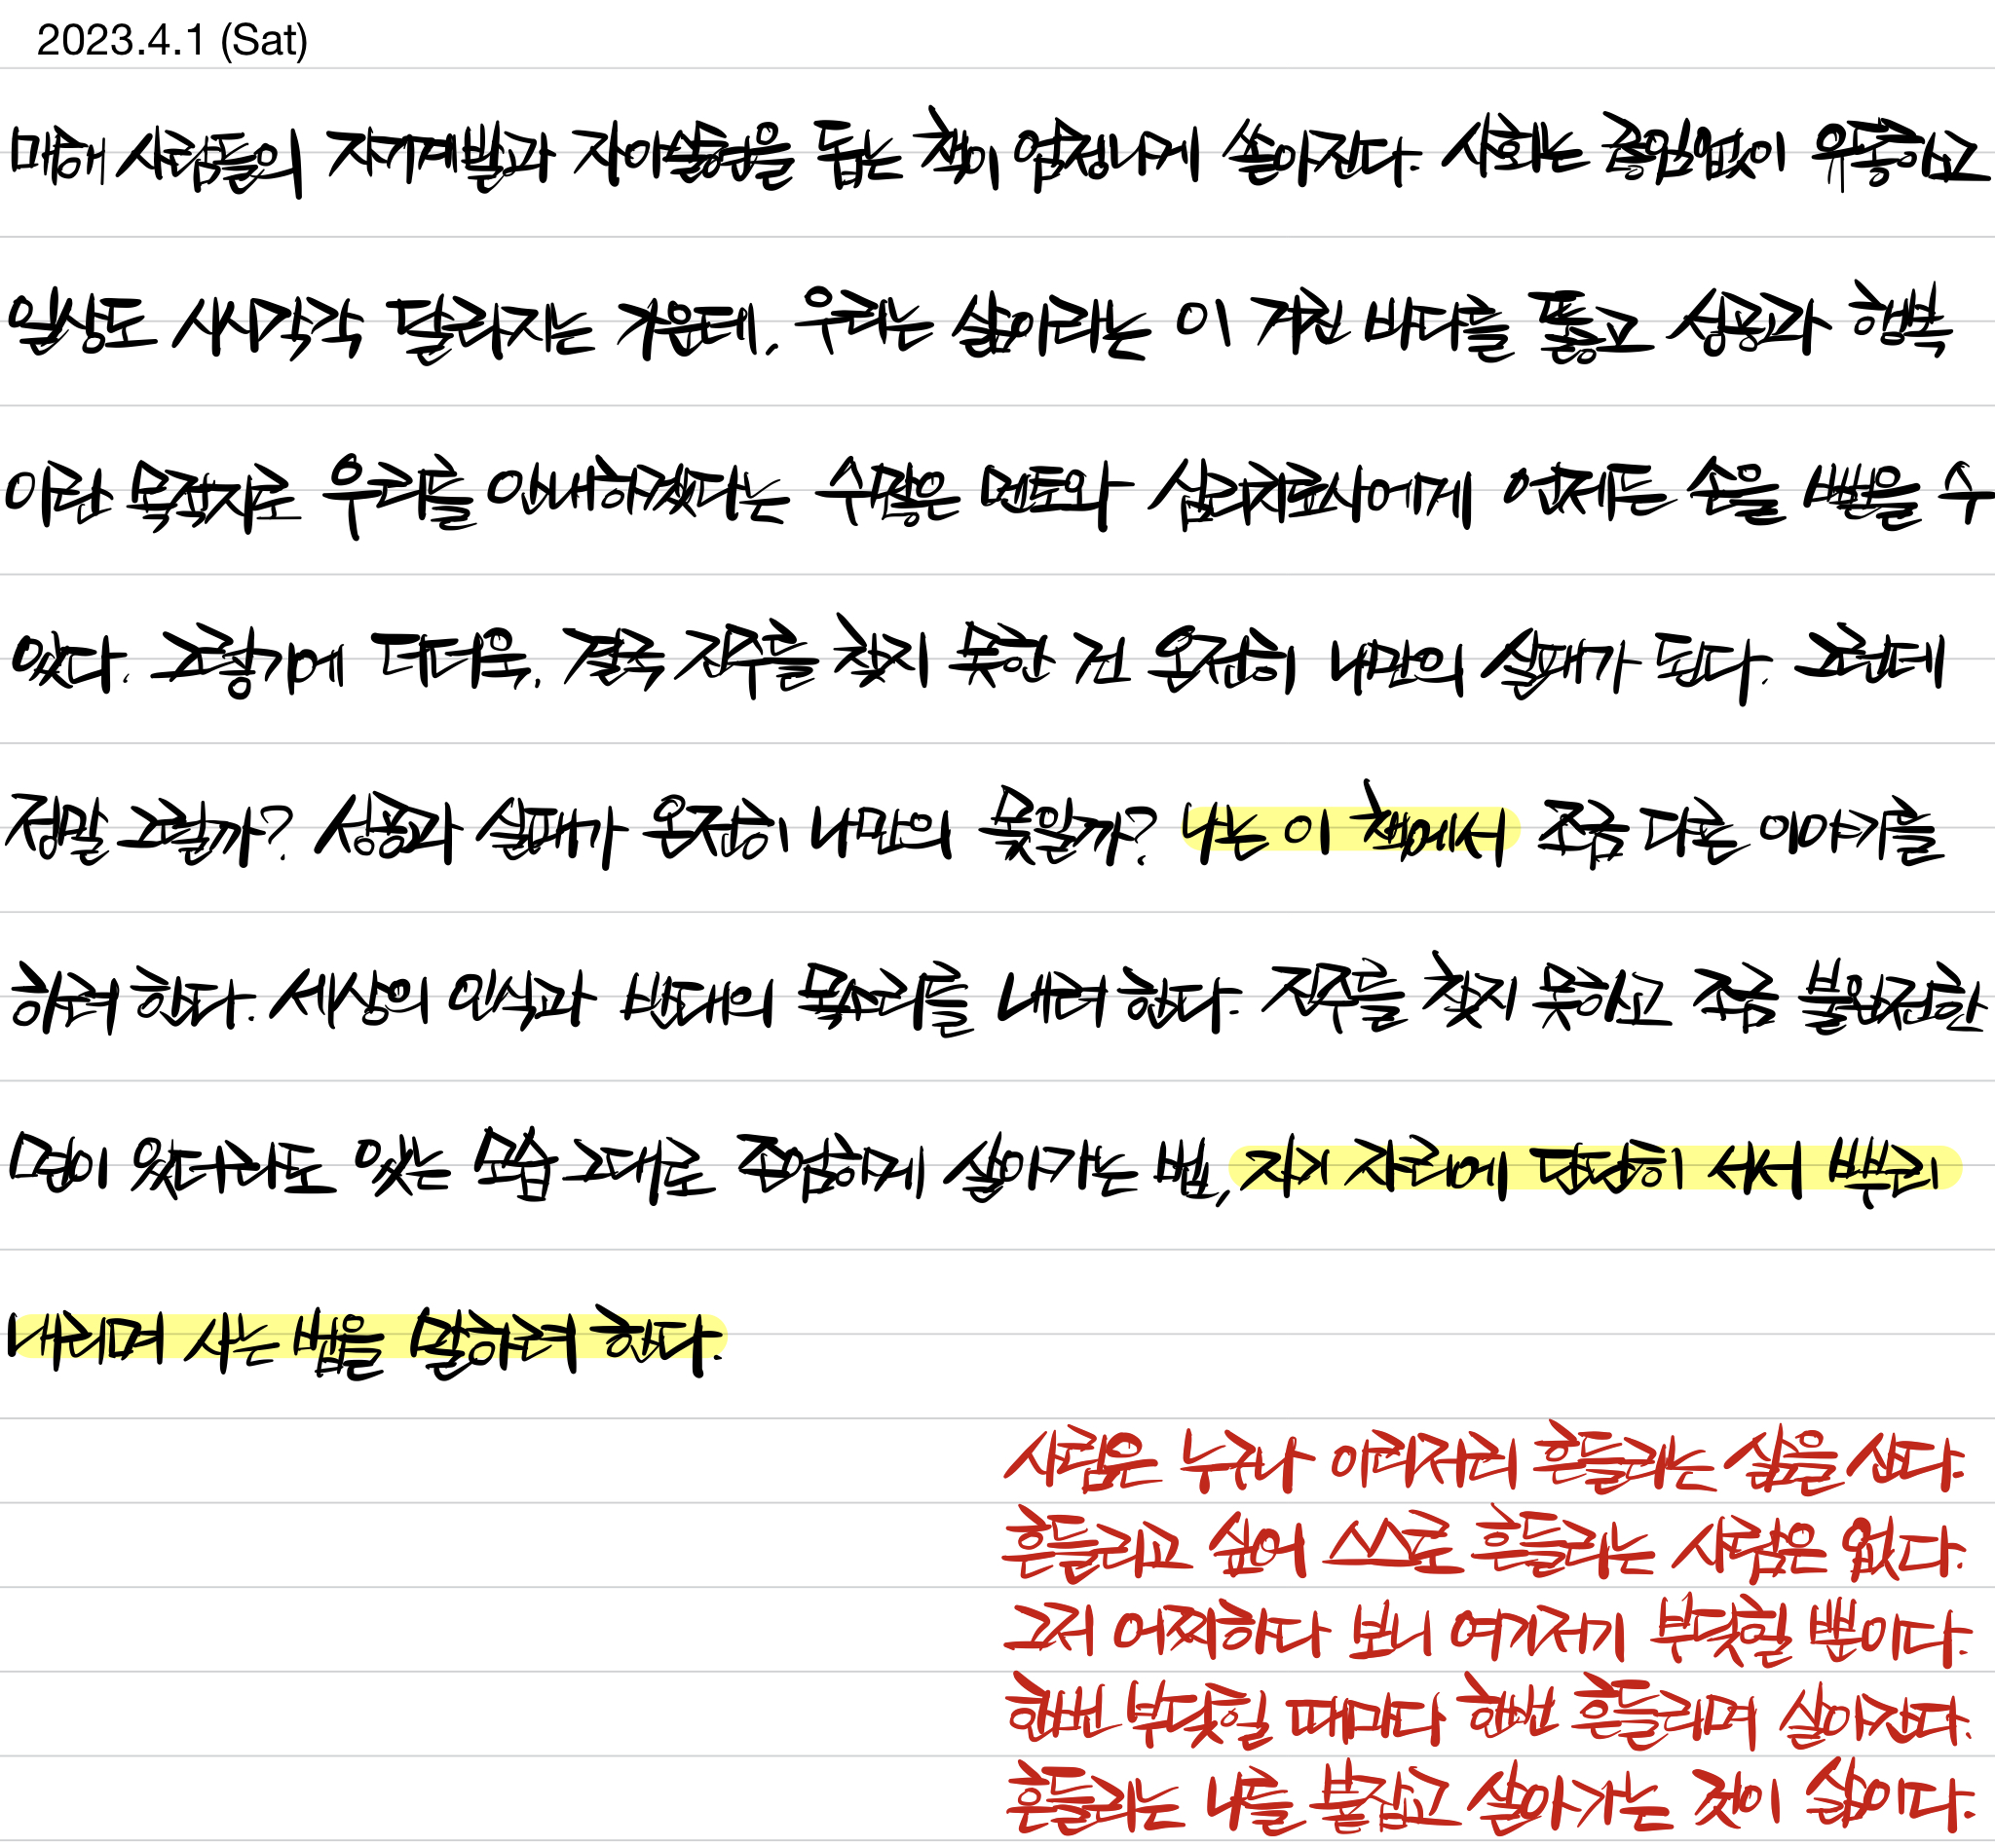 2023.4.1 (Sat)
매해 사람들의 자기계발과 자아성장을 돕는 책이 엄청나게 쏟아진다. 사회는 끊임없이 요동치고
일상도 시시각각 달라지는 가운데, 우리는 삶이라는 이 거친 바다를 뚫고 성공과 행복
이란 목적지로 우리를 안내하겠다는 수많은 멘토와 심리치료사에게 언제든 손을 뻗을 수
있다. 그렇기에 더더욱, 결국 진주를 찾지 못한 건 온전히 나만의 실패가 된다. 그런데
정말 그럴까? 성공과 실패가 온전히 나만의 몫일까? 나는 이 책에서 조금 다른 이야기를
하려 한다. 세상의 인식과 반대의 목소리를 내려 한다. 진주를 찾지 못하고 조금 불완전한
면이 있더라도 있는 모습 그대로 존엄하게 살아가는 법, 자기 자리에 단단히 서서 뿌리
내리며 사는 법을 말하려 한다.
사람은 누구나 이리저리 흔들리는 삶을 산다.
흔들리고 싶어 스스로 흔들리는 사람은 없다.
그저 어찌하다 보니 여기저기 부딪힌 뿐이다.
한번 부딪힐 때마다 한번 흔들리며 살아간다.
흔들리는 나를 붙잡고 살아가는 것이 삶이다.